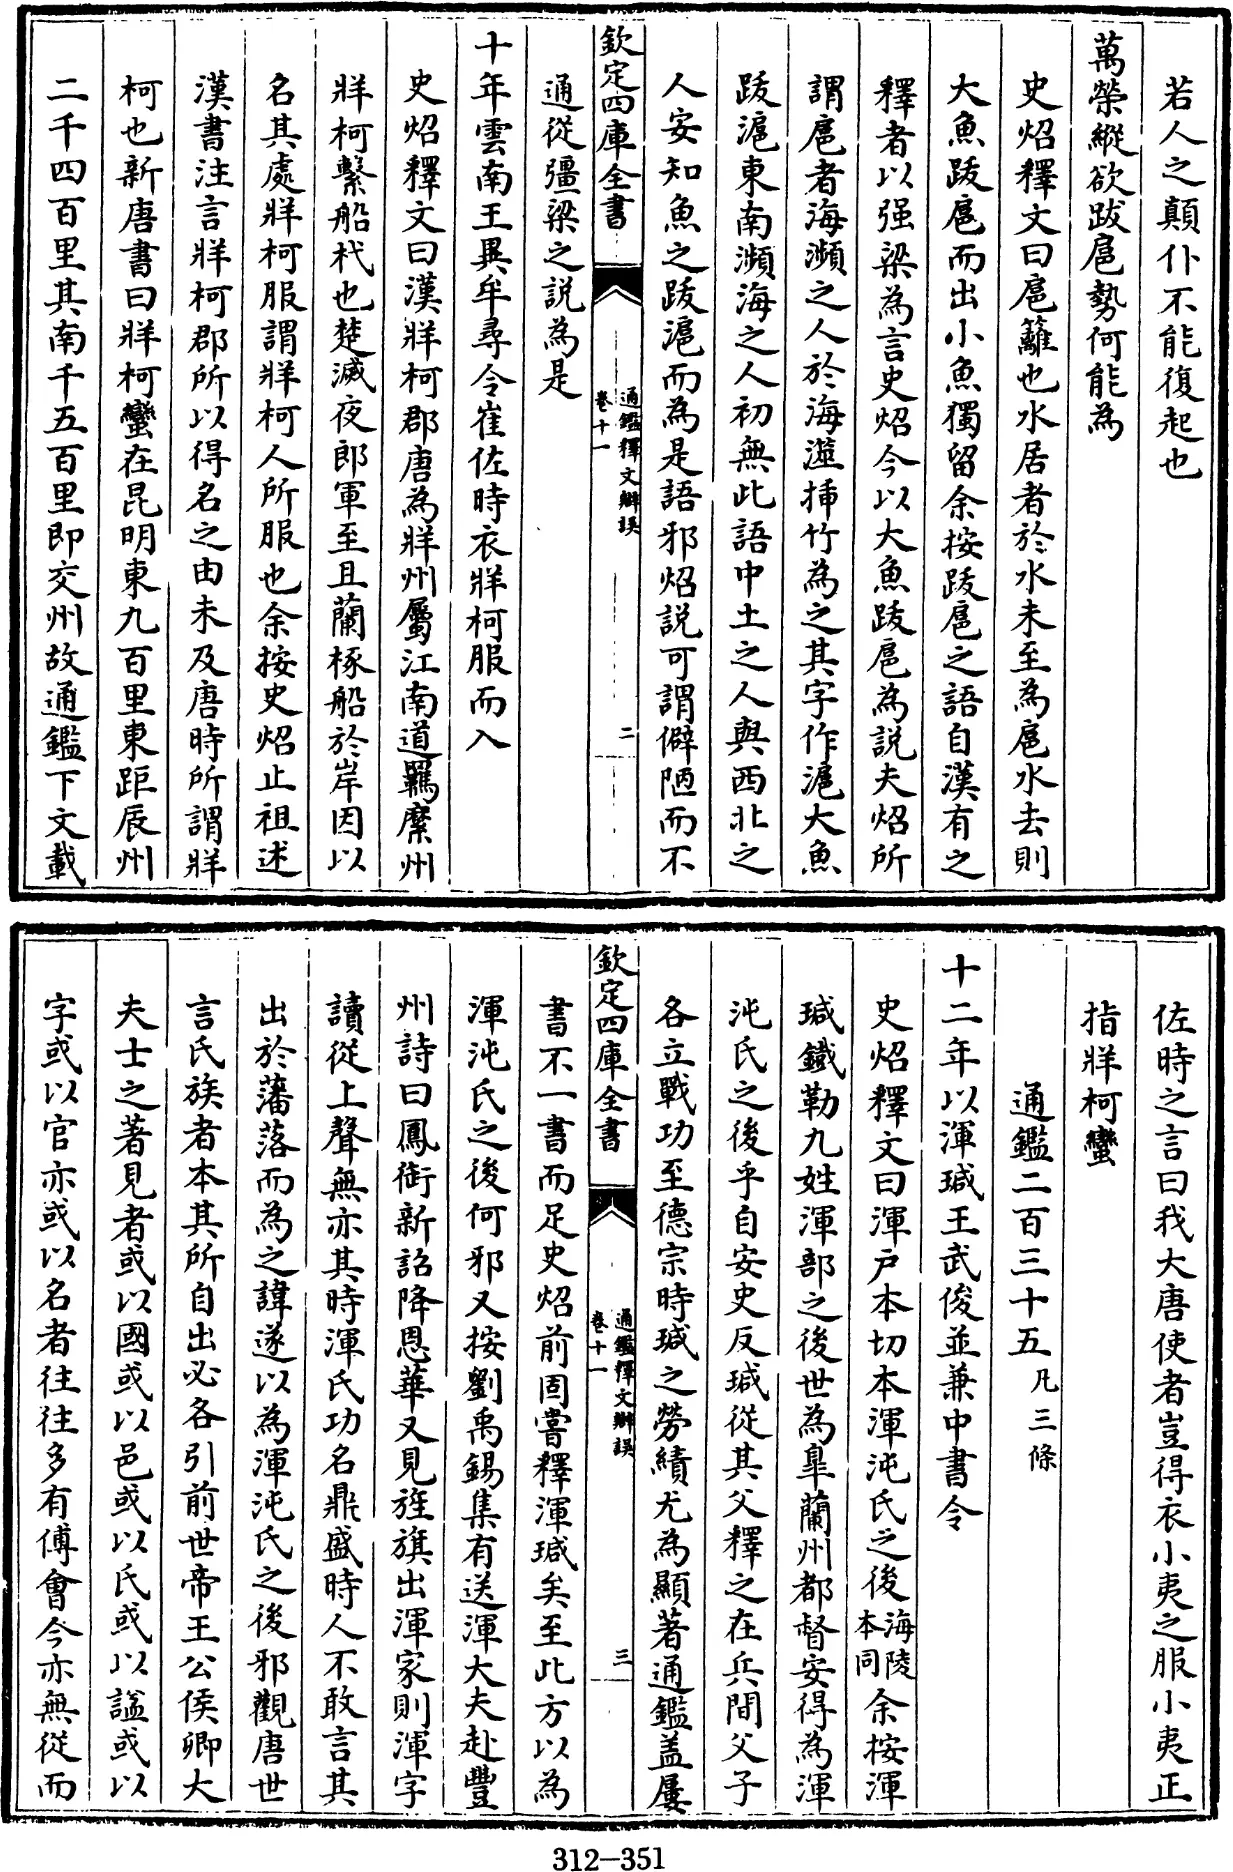 若人之顛仆不能復起也
萬榮縱欲跋扈勢何能為
史炤釋文曰扈籬也水居者於水未至為扈水去則
大魚跋扈而出小魚獨留余按跋扈之語自漢有之
釋者以强梁為言史炤今以大魚跋扈為說夫炤所
謂扈者海瀕之人於海澨挿竹為之其字作滬大魚
跋滬東南瀕海之人初無此語中土之人與西北之
人安知魚之跋滬而為是語邪炤説可謂僻陋而不
欽定四庫全書
通鑑釋文辯誤
卷十一
二
通從彊梁之説為是
十年雲南王異牟尋令崔佐時衣牂柯服而入
史炤釋文曰漢牂柯郡唐為牂州屬江南道羈縻州
牂柯繫船杙也楚滅夜郎軍至且蘭椓船於岸因以
名其處牂柯服謂牂柯人所服也余按史炤止祖述
漢書注言牂柯郡所以得名之由未及唐時所謂牂
柯也新唐書曰牂柯蠻在昆明東九百里東距辰州
二千四百里其南千五百里即交州故通鑑下文載
佐時之言曰我大唐使者豈得衣小夷之服小夷正
指牂柯蠻
通鑑二百三十五凡三條
十二年以渾瑊王武俊並兼中書令
史炤釋文曰渾戸本切本渾沌氏之後海陵本同余按渾
瑊鐵勒九姓渾部之後世為臯蘭州都督安得為渾
沌氏之後乎自安史反瑊從其父釋之在兵間父子
各立戰功至德宗時瑊之勞績尤為顯著通鑑盖屢
欽定四庫全書
通鑑釋文辯誤
卷十一
三
書不一書而足史炤前固嘗釋渾瑊矣至此方以為
渾沌氏之後何邪又按劉禹錫集有送渾大夫赴豐
州詩曰鳳銜新詔降恩華又見旌旗出渾家則渾字
讀從上聲無亦其時渾氏功名鼎盛時人不敢言其
出於藩落而為之諱遂以為渾沌氏之後邪觀唐世
言氏族者本其所自出必各引前世帝王公侯卿大
夫士之著見者或以國或以邑或以氏或以謚或以
字或以官亦或以名者往往多有傅會今亦無從而
312-351